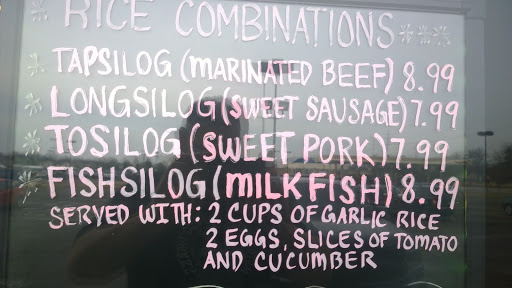 RICE COMBINATIONS
TAPSILOG (MARINATED BEEF) 8.99
LONGSILOG (SWEET SAUSAGE) 7.99
TOSILOG (SWEET PORK) 7.99
FISHSILOG (MILKFISH) 8.99
SERVED WITH: 2 CUPS OF GARLIC RICE
2 EGGS, SLICES OF TOMATO
AND CUCUMBER